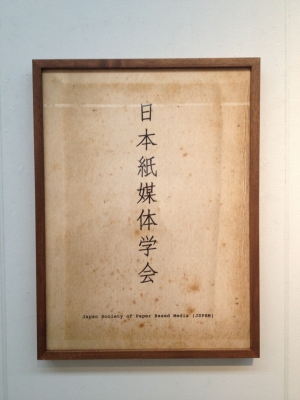 日本紙媒体学会
Japan Society of Paper Based Media [JSPBM]